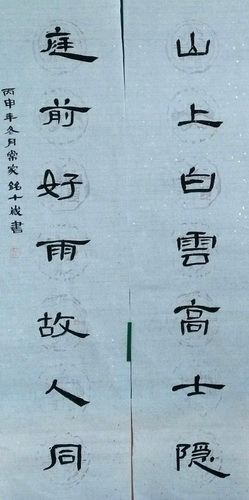 山上白雲高士隐
庭前好雨故人同
丙申年冬月常家銘十歲書